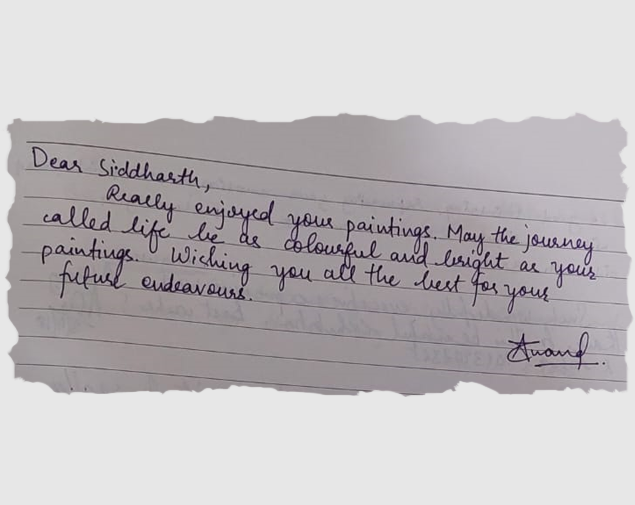 Dear Siddharth,
Really enjoyed your paintings. May the journey
called life be as colourful and bright as your
paintings. Wishing you all the best for your
future endeavours.
Anand.